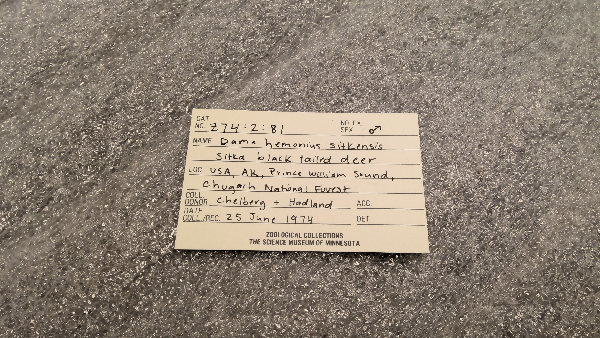 CAT. NO. Z74:2:81 NO. EX. SEX ♂
NAME Dama hemonius sitkensis
Sitka black tailed deer
LOC. USA, AK, Prince William Sound,
Chugach National Forest
COLL. DONOR Chelberg + Hadland ACC.
DATE COLL./REC. 25 June 1974 DET.
ZOOLOGICAL COLLECTIONS
THE SCIENCE MUSEUM OF MINNESOTA